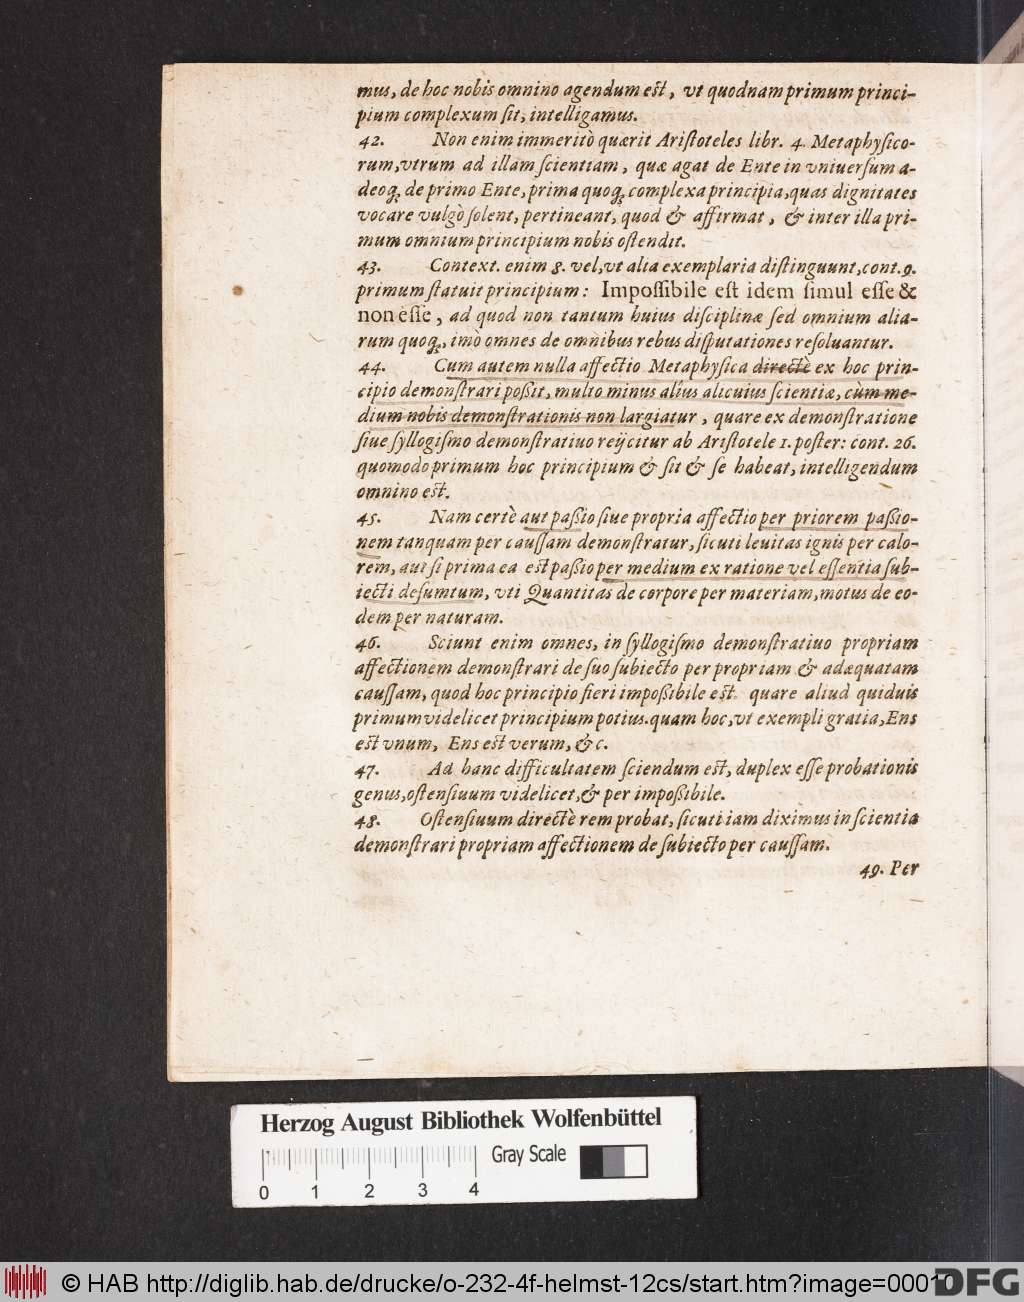 mus, de hoc nobis omnino agendum est, vt quodnam primum princi-
pium complexum sit, intelligamus.
42. Non enim immeritò quærit Aristoteles libr. 4. Metaphysico-
rum, vtrum ad illam scientiam, quæ agat de Ente in vniuersum a-
deoq; de primo Ente, prima quoq; complexa principia, quas dignitates
vocare vulgò solent, pertineant, quod & affirmat, & inter illa pri-
mum omnium principium nobis ostendit.
43. Context. enim 8. vel, vt alia exemplaria distinguunt, cont. 9.
primum statuit principium: Impossibile est idem simul esse &
non esse, ad quod non tantum huius disciplinæ sed omnium alia-
rum quoq;, imò omnes de omnibus rebus disputationes resoluantur.
44. Cum autem nulla affectio Metaphysica directè ex hoc prin-
cipio demonstrari poßit, multo minus alius alicuius scientiæ, cùm me-
dium nobis demonstrationis non largiatur, quare ex demonstratione
siue syllogismo demonstratiuo reijcitur ab Aristotele 1. poster: cont. 26.
quomodo primum hoc principium & sit & se habeat, intelligendum
omnino est.
45. Nam certè aut paßio siue propria affectio per priorem paßio-
nem tanquam per caussam demonstratur, sicuti leuitas ignis per calo-
rem, aut si prima ea est paßio per medium ex ratione vel essentia sub-
iecti desumtum, vti Quantitas de corpore per materiam, motus de eo-
dem per naturam.
46. Sciunt enim omnes, in syllogismo demonstratiuo propriam
affectionem demonstrari de suo subiecto per propriam & adæquatam
caussam, quod hoc principio fieri impoßibile est. quare aliud quiduis
primum videlicet principium potius. quam hoc, vt exempli gratia, Ens
est vnum, Ens est verum, &c.
47. Ad hanc difficultatem sciendum est, duplex esse probationis
genus, ostensiuum videlicet, & per impoßibile.
48. Ostensiuum directè rem probat, sicuti iam diximus in scientia
demonstrari propriam affectionem de subiecto per caussam.
49. Per
Herzog August Bibliothek Wolfenbüttel
Gray Scale
0 1 2 3 4
© HAB http://diglib.hab.de/drucke/o-232-4f-helmst-12cs/start.htm?image=00010
DFG